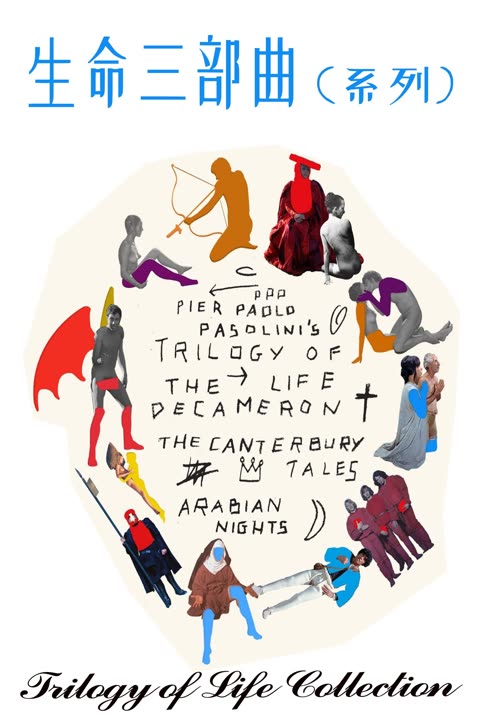 生命三部曲（系列）
PPP
PIER PAOLO
PASOLINI'S
TRILOGY OF
THE → LIFE
DECAMERON
THE CANTERBURY
TALES
ARABIAN
NIGHTS
Trilogy of Life Collection